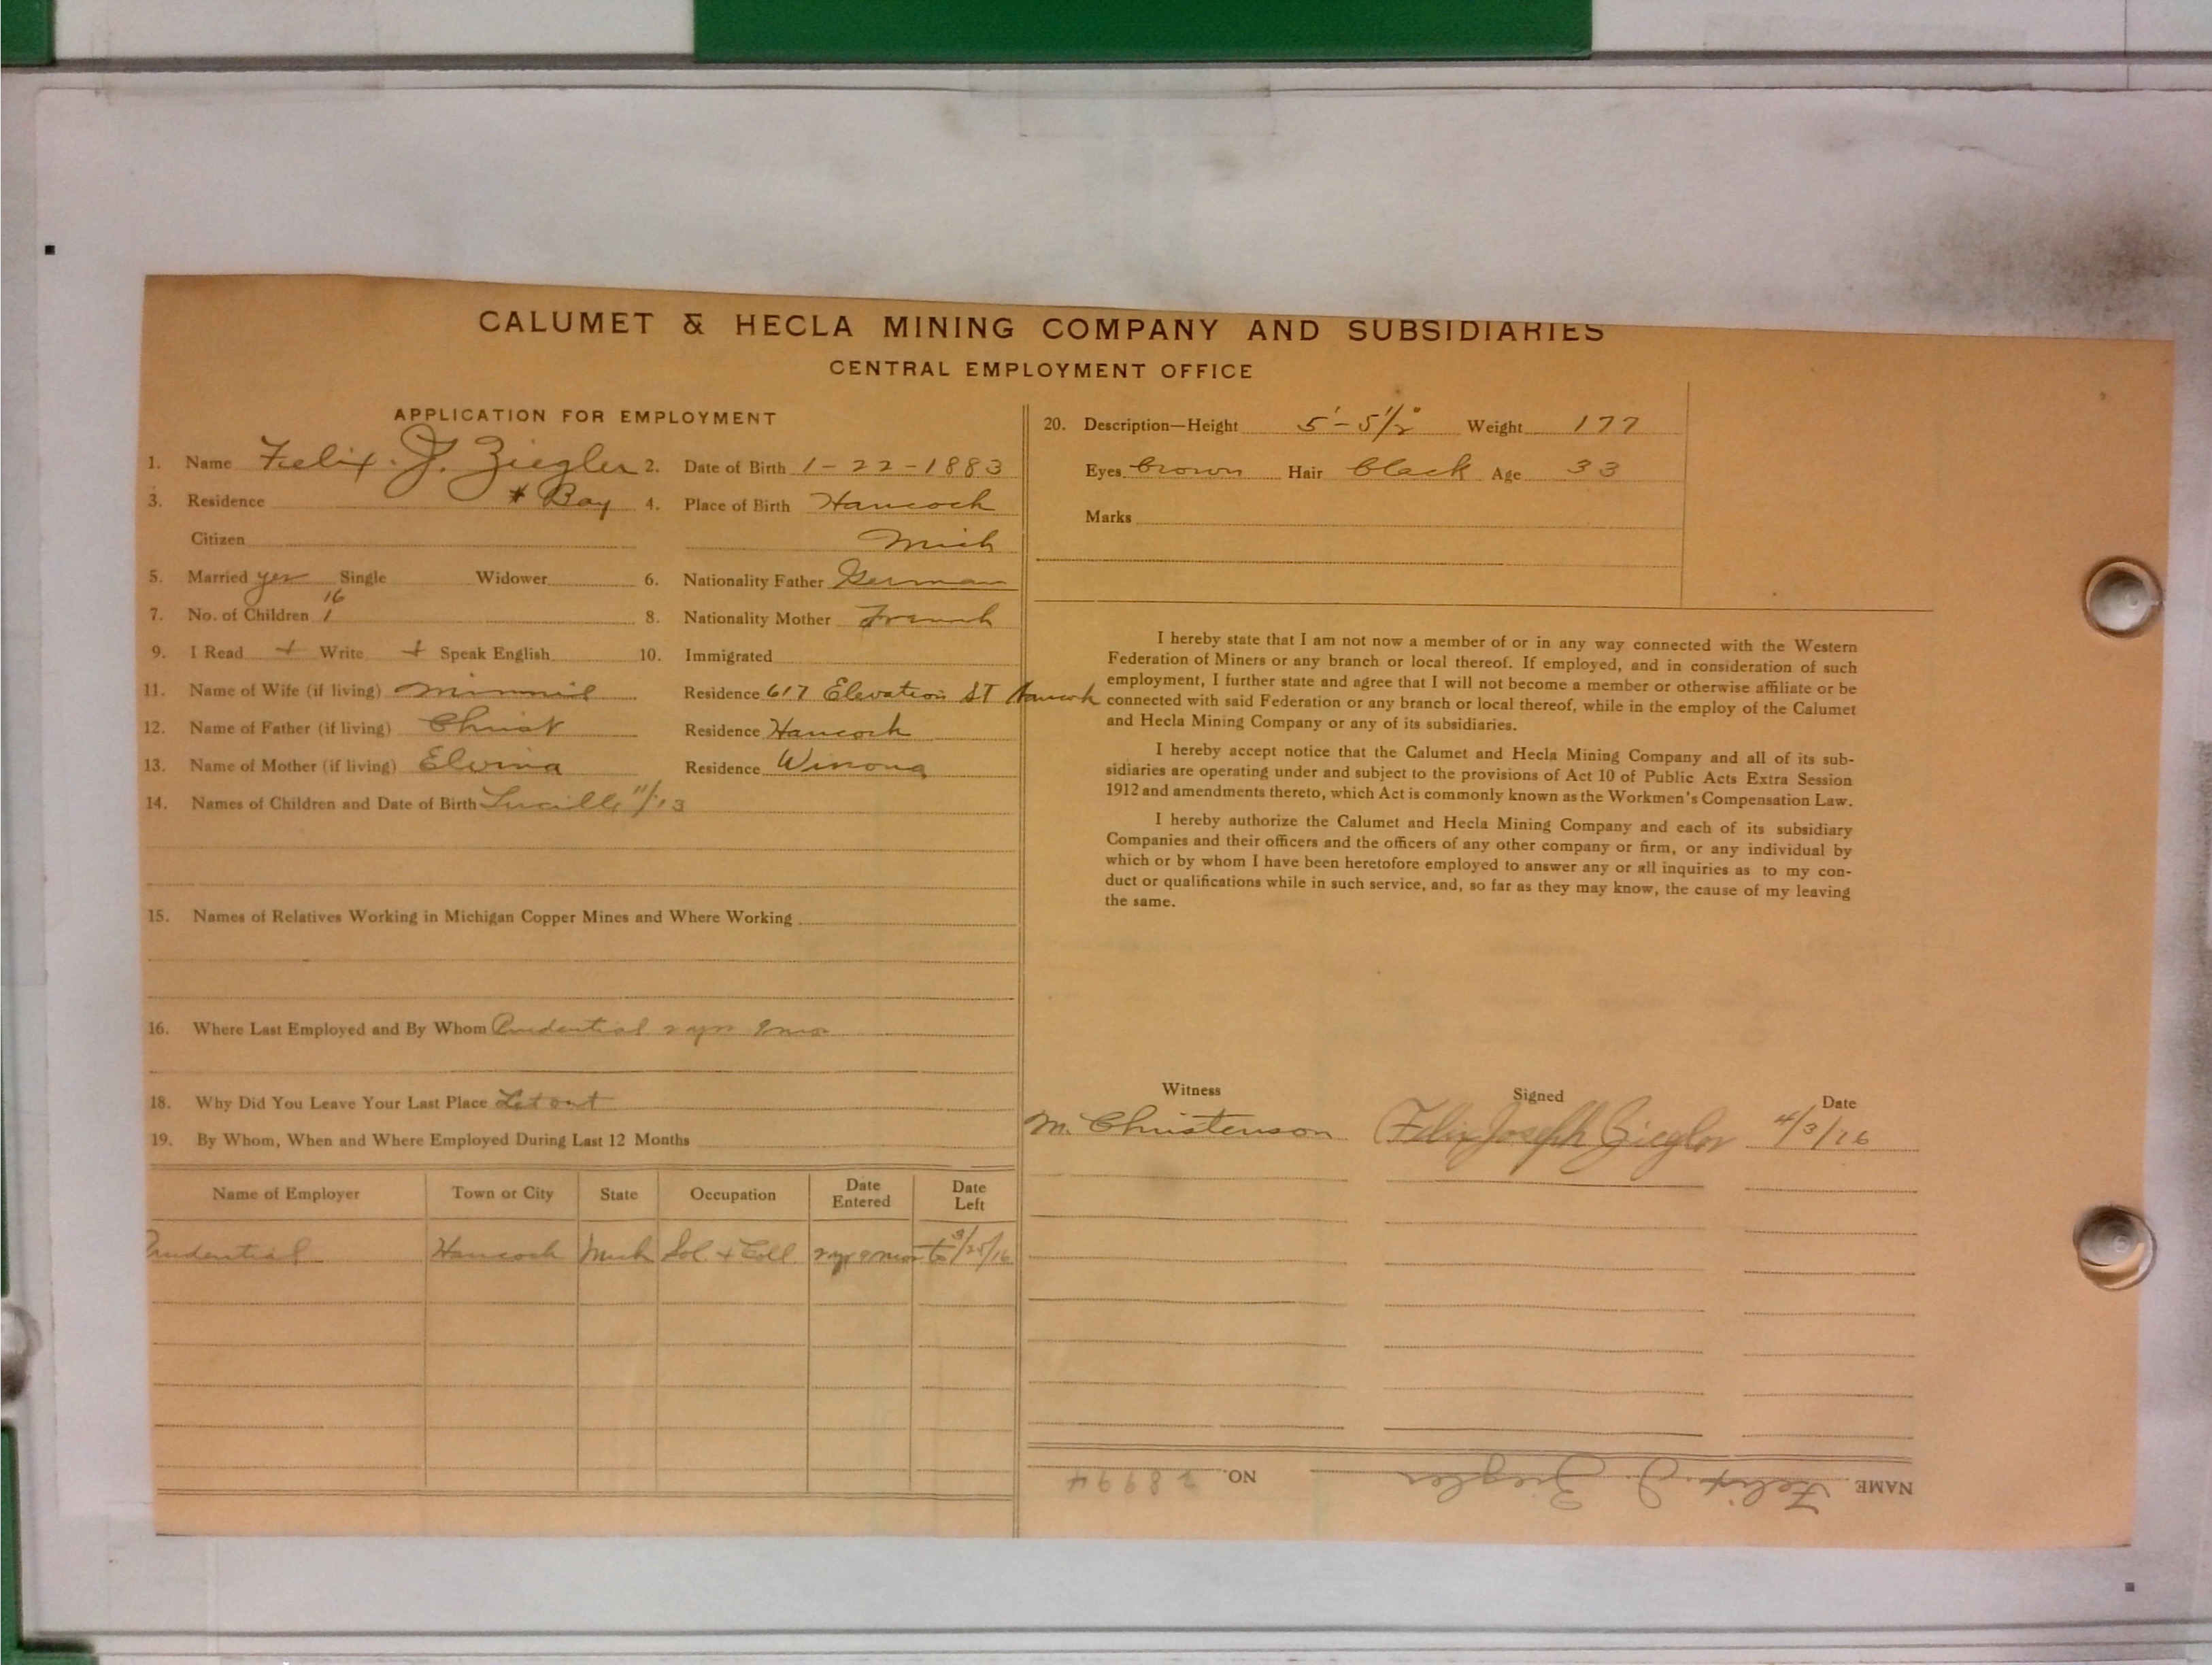 CALUMET & HECLA MINING COMPANY AND SUBSIDIARIES
CENTRAL EMPLOYMENT OFFICE
APPLICATION FOR EMPLOYMENT
1. Name Felix. J. Ziegler 2. Date of Birth 1-22-1883
3. Residence * Bay 4. Place of Birth Hancock
Citizen Mich
5. Married yes Single Widower 6. Nationality Father German
16
7. No. of Children 1 8. Nationality Mother French
9. I Read + Write + Speak English 10. Immigrated
11. Name of Wife (if living) Minnie Residence 617 Elevation ST Hancock
12. Name of Father (if living) Christ Residence Hancock
13. Name of Mother (if living) Elvina Residence Winona
14. Names of Children and Date of Birth Lucille 11/13
15. Names of Relatives Working in Michigan Copper Mines and Where Working
16. Where Last Employed and By Whom Prudential 2 yrs 9 mos
18. Why Did You Leave Your Last Place Let out
19. By Whom, When and Where Employed During Last 12 Months
Name of Employer Town or City State Occupation Date Entered Date Left
Prudential Hancock Mich Sol. + Coll. 2 yr 9 mos to 3/25/16
20. Description—Height 5'-5 1/2" Weight 177
Eyes brown Hair black Age 33
Marks
I hereby state that I am not now a member of or in any way connected with the Western
Federation of Miners or any branch or local thereof. If employed, and in consideration of such
employment, I further state and agree that I will not become a member or otherwise affiliate or be
connected with said Federation or any branch or local thereof, while in the employ of the Calumet
and Hecla Mining Company or any of its subsidiaries.
I hereby accept notice that the Calumet and Hecla Mining Company and all of its sub-
sidiaries are operating under and subject to the provisions of Act 10 of Public Acts Extra Session
1912 and amendments thereto, which Act is commonly known as the Workmen's Compensation Law.
I hereby authorize the Calumet and Hecla Mining Company and each of its subsidiary
Companies and their officers and the officers of any other company or firm, or any individual by
which or by whom I have been heretofore employed to answer any or all inquiries as to my con-
duct or qualifications while in such service, and, so far as they may know, the cause of my leaving
the same.
Witness Signed Date
M. Christenson Felix Joseph Ziegler 4/3/16
NAME Felix. J. Ziegler NO. 28994